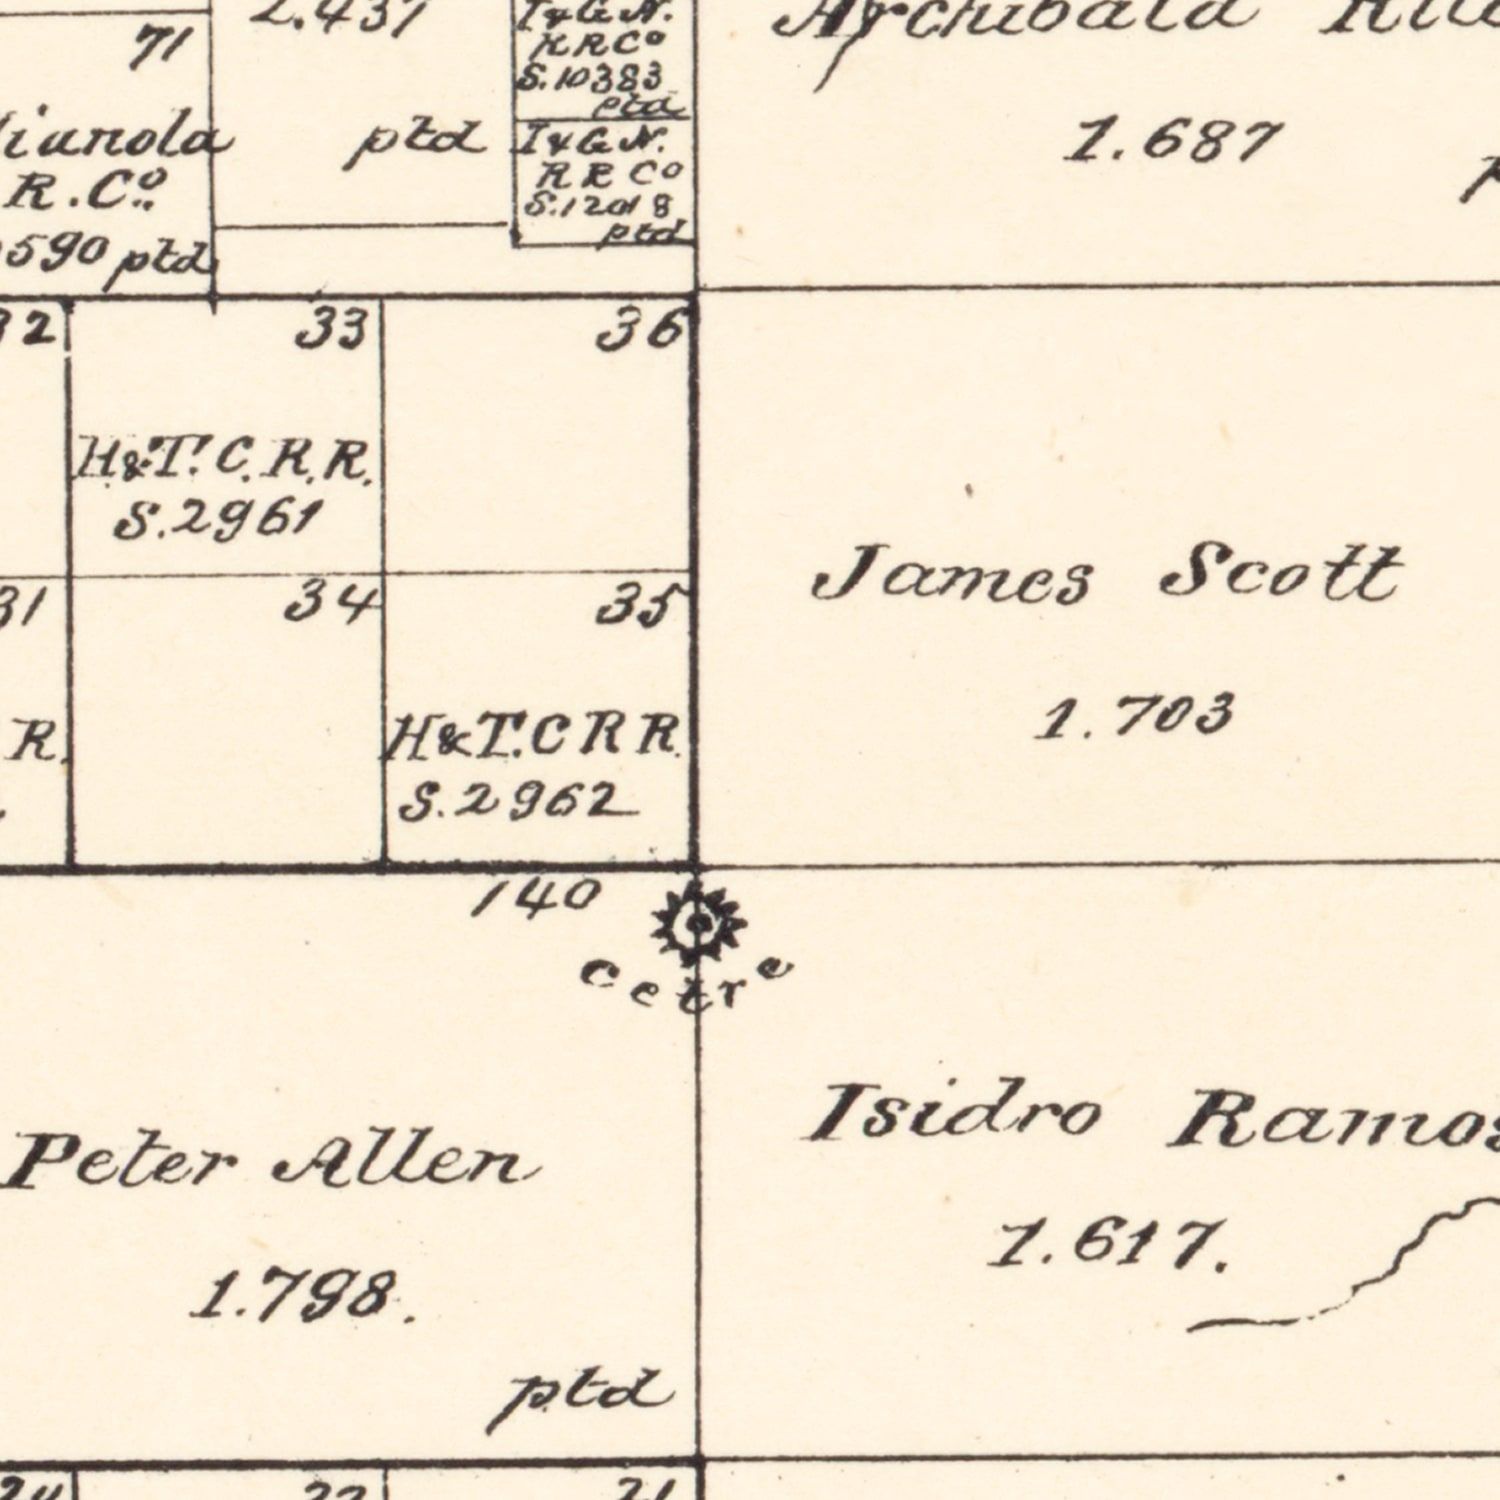 71
2.437
ptd
I&G.N.
R R Co
S.10383
ptd
I&G.N.
R R Co
S.12018
ptd
Archibald
1.687
R.Co.
590 ptd
32
33
36
H&T.C.R.R.
S.2961
31
34
35
R.
H&T.C R R.
S.2962
James Scott
1.703
140
Cetre
Peter Allen
1.798.
ptd
Isidro Ramos
1.617.
24
22
21